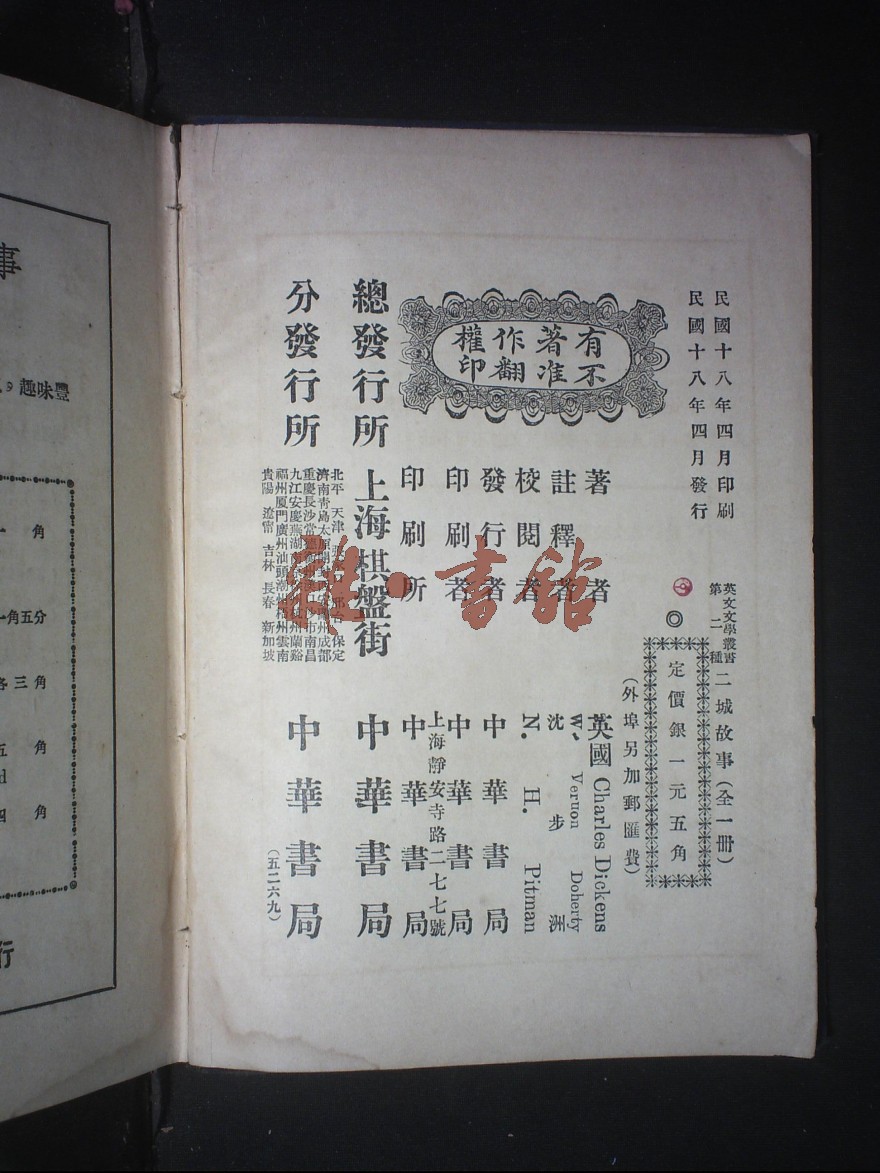 民國十八年四月印刷
民國十八年四月發行
英文文學叢書
第二種
二城故事（全一冊）
◎
定價銀一元五角
（外埠另加郵匯費）
有不
著准
作翻
權印
著者 英國 Charles Dickens
註釋者 W. Vernon Doherty
沈步洲
校閱者 N. H. Pitman
發行者 中華書局
印刷者 中華書局
印刷所 上海靜安寺路二七七號
中華書局
總發行所 上海棋盤街 中華書局
分發行所
北平 天津 保定
濟南青島太原 成都
重慶長沙常德 南昌
九江安慶蕪湖南 州蘭谿
福州厦門廣州汕頭潮 梧州雲南
貴陽 遼甯 吉林 長春 新加坡
中華書局
（五二六九）
雜·書館
事
趣味豐
角
角五分
各三角
五角
四角
行